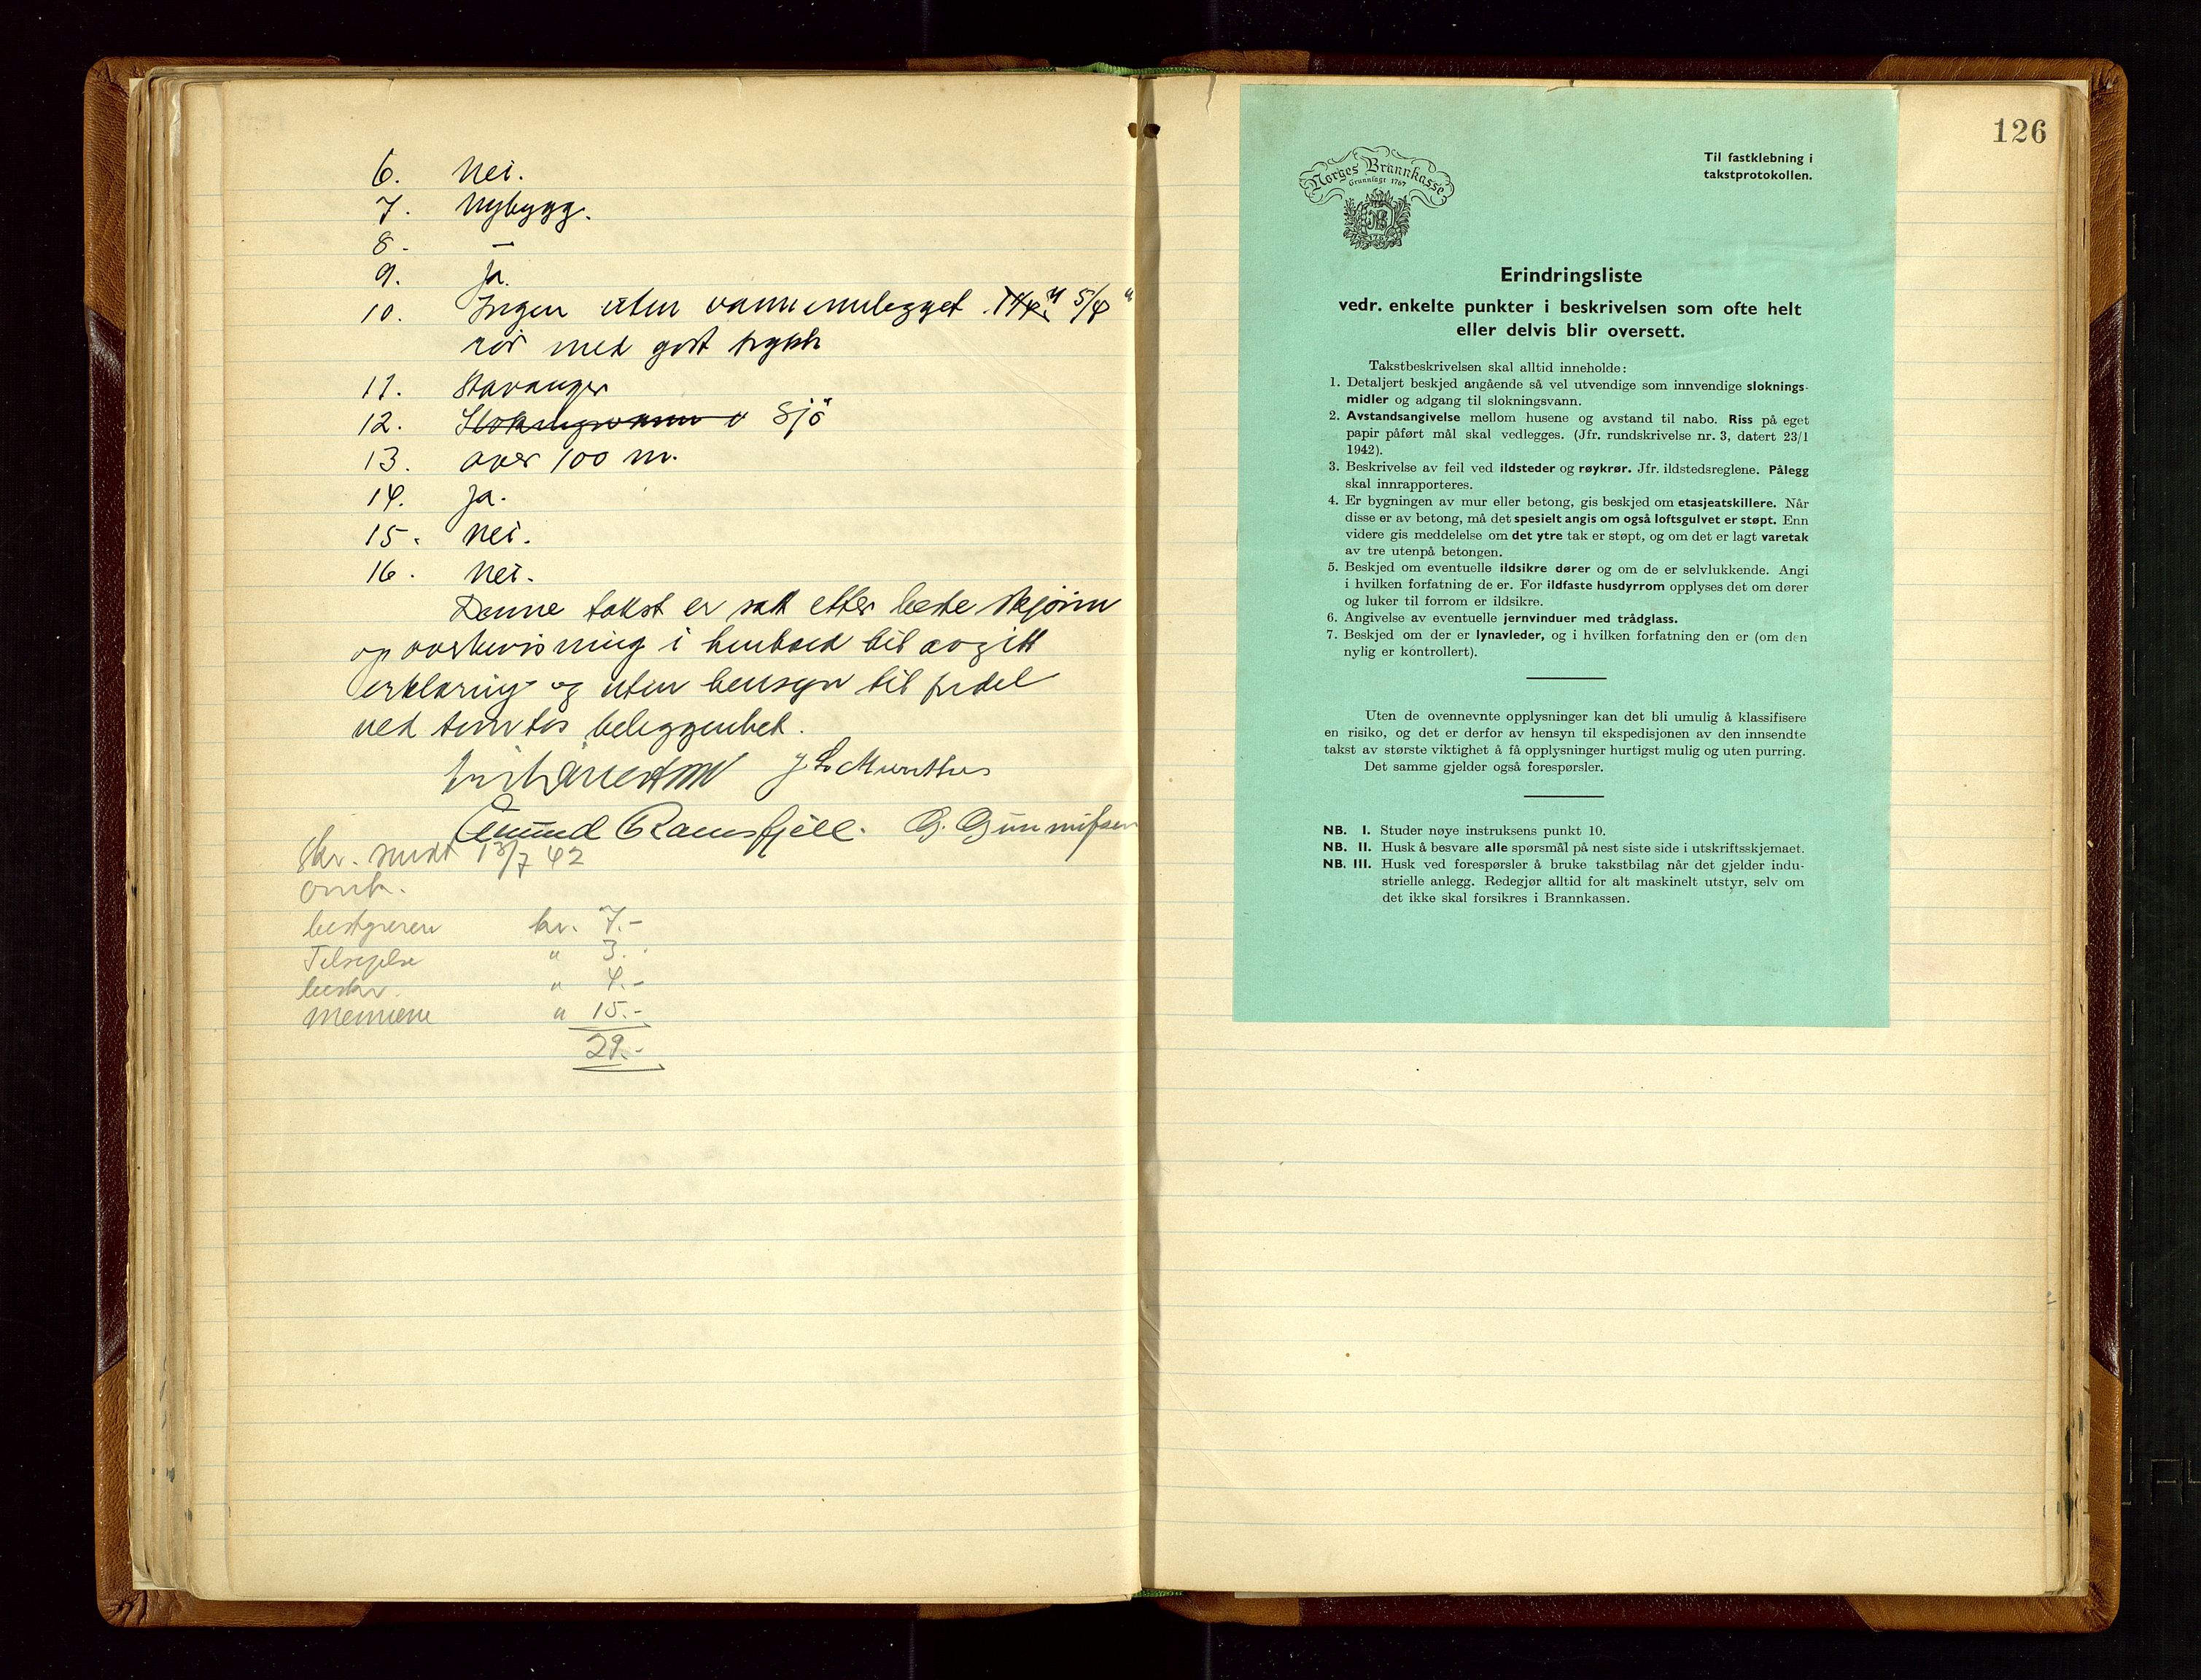 6. Nei.
7. Nybygg.
8. —
9. Ja.
10. Ingen uten vann innlegget 5/4"
rör med godt trykk
11. Stavanger
12. Slokningsvann i Sjö
13. over 100 m.
14. Ja.
15. Nei.
16. Nei.
Denne takst er satt etter beste skjönn
og overbevisning i henhold til avgitt
erklæring og uten hensyn til fordel
ved tomtens beliggenhet.
J. L. Munthes
Amund Ramsfjell. G. Gunnufsen
Skr. sendt 13/7 42
Omk.
bestyreren kr. 7.-
Tilsigelse " 3.-
beskr. " 4.-
mennene " 15.-
29.-
126
Norges Brannkasse
Grunnlagt 1767
Til fastklebning i
takstprotokollen.
Erindringsliste
vedr. enkelte punkter i beskrivelsen som ofte helt
eller delvis blir oversett.
Takstbeskrivelsen skal alltid inneholde:
1. Detaljert beskjed angående så vel utvendige som innvendige sloknings-
midler og adgang til slokningsvann.
2. Avstandsangivelse mellom husene og avstand til nabo. Riss på eget
papir påført mål skal vedlegges. (Jfr. rundskrivelse nr. 3, datert 23/1
1942).
3. Beskrivelse av feil ved ildsteder og røykrør. Jfr. ildstedsreglene. Pålegg
skal innrapporteres.
4. Er bygningen av mur eller betong, gis beskjed om etasjeatskillere. Når
disse er av betong, må det spesielt angis om også loftsgulvet er støpt. Enn
videre gis meddelelse om det ytre tak er støpt, og om det er lagt varetak
av tre utenpå betongen.
5. Beskjed om eventuelle ildsikre dører og om de er selvlukkende. Angi
i hvilken forfatning de er. For ildfaste husdyrrom opplyses det om dører
og luker til forrom er ildsikre.
6. Angivelse av eventuelle jernvinduer med trådglass.
7. Beskjed om der er lynavleder, og i hvilken forfatning den er (om den
nylig er kontrollert).
Uten de ovennevnte opplysninger kan det bli umulig å klassifisere
en risiko, og det er derfor av hensyn til ekspedisjonen av den innsendte
takst av største viktighet å få opplysninger hurtigst mulig og uten purring.
Det samme gjelder også forespørsler.
NB. I. Studer nøye instruksens punkt 10.
NB. II. Husk å besvare alle spørsmål på nest siste side i utskriftsskjemaet.
NB. III. Husk ved forespørsler å bruke takstbilag når det gjelder indu-
strielle anlegg. Redegjør alltid for alt maskinelt utstyr, selv om
det ikke skal forsikres i Brannkassen.